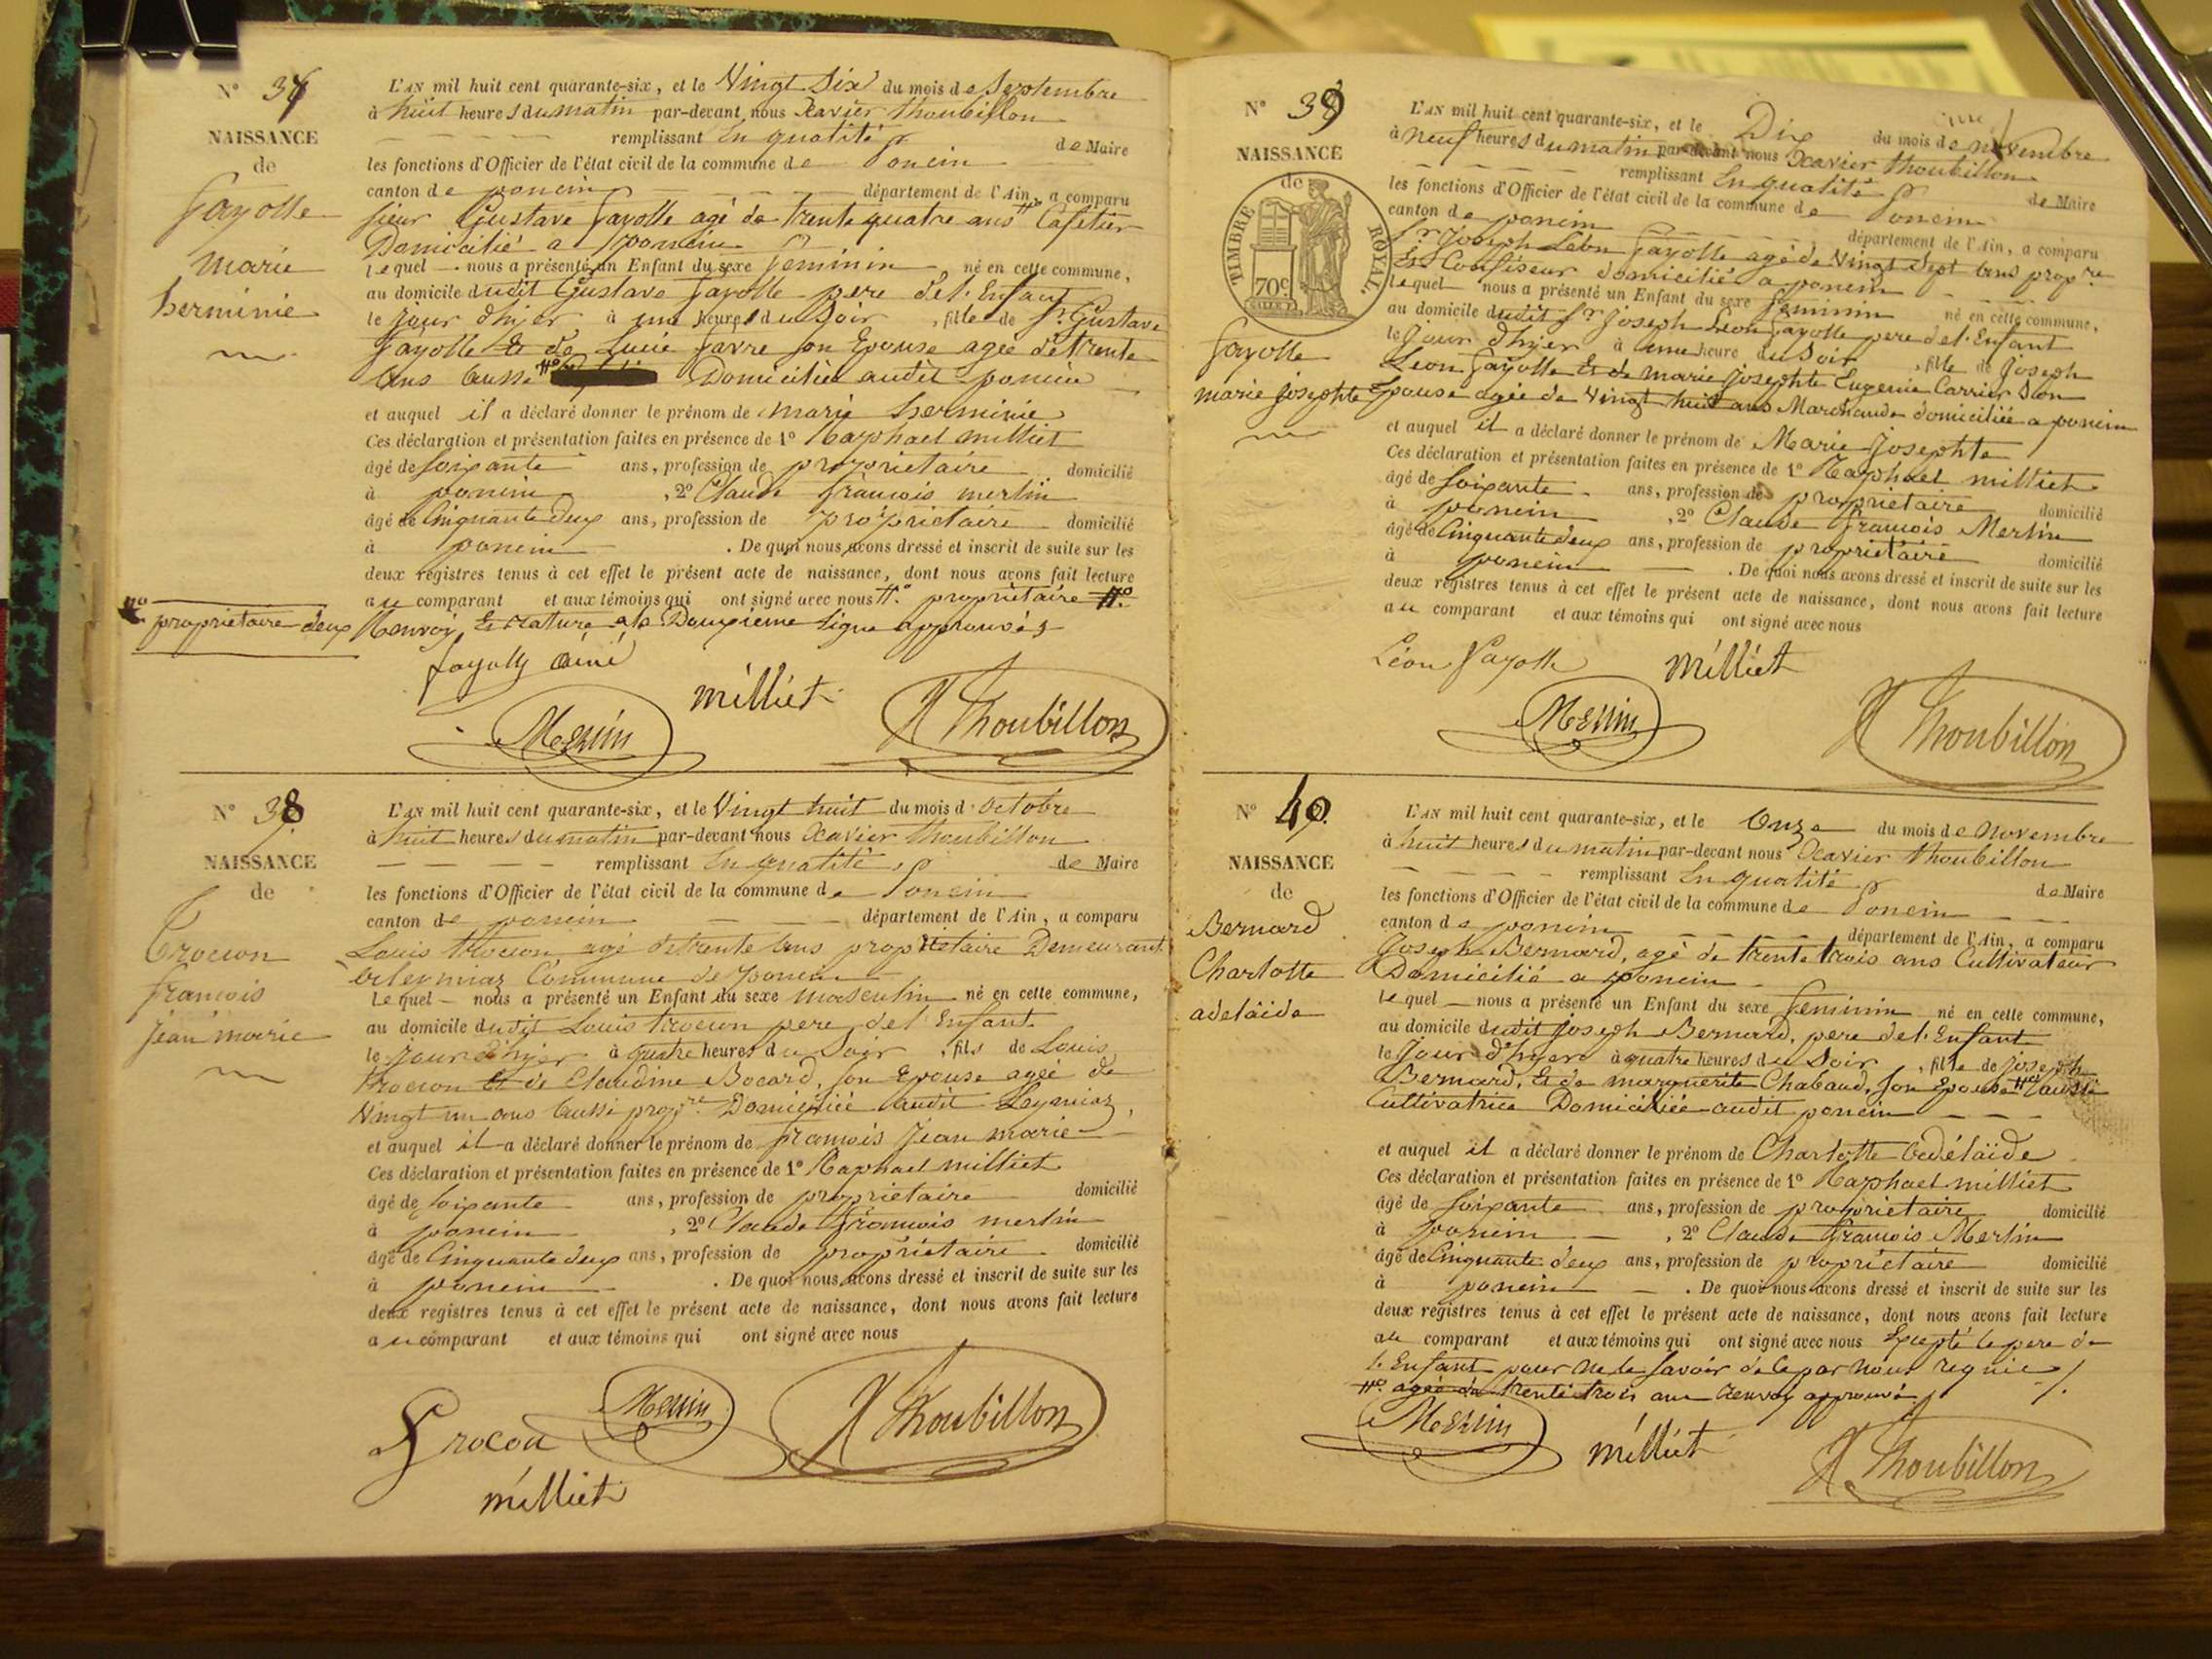 N° 37
NAISSANCE
de
Fayolle
marie
herminie
L'AN mil huit cent quarante-six, et le Vingt Six du mois de Septembre
à huit heures du matin par-devant nous Xavier thoubillon
remplissant En qualité de Maire
les fonctions d'Officier de l'état civil de la commune de Poncin
canton de poncin département de l'Ain, a comparu
sieur Gustave Fayolle agé de trente quatre ans Cafetier
Domicilié a poncin
lequel nous a présenté un Enfant du sexe feminin, né en cette commune,
au domicile dudit Gustave Fayolle pere de l'Enfant
le jour d'hyer à une heure du Soir, fille de Sr Gustave
Fayolle Et de Lucie Favre son Epouse agée de trente
ans aussi Domiciliée audit poncin
et auquel il a déclaré donner le prénom de marie herminie
Ces déclaration et présentation faites en présence de 1° Raphael milliet
âgé de soixante ans, profession de proprietaire domicilié
à poncin, 2° Claude francois merlin
âgé de Cinquante deux ans, profession de proprietaire domicilié
à poncin. De quoi nous avons dressé et inscrit de suite sur les
deux registres tenus à cet effet le présent acte de naissance, dont nous avons fait lecture
au comparant et aux témoins qui ont signé avec nous proprietaire
proprietaire deux Renvoy Et rature a la Douzieme ligne approuvés
fayolle ainé
milliet
Merlin
X Thoubillon
N° 38
NAISSANCE
de
Trocon
francois
jean marie
L'AN mil huit cent quarante-six, et le Vingt huit du mois d'octobre
à huit heures du matin par-devant nous Xavier thoubillon
remplissant En qualité de Maire
les fonctions d'Officier de l'état civil de la commune de Poncin
canton de poncin département de l'Ain, a comparu
Louis trocon agé de trente ans proprietaire Demeurant
a leymiaz Commune de poncin
lequel nous a présenté un Enfant du sexe masculin né en cette commune,
au domicile dudit Louis trocon pere de l'Enfant
le jour d'hyer à quatre heures du Soir, fils de Louis
trocon Et de Claudine Bocard, son Epouse agée de
Vingt un ans aussi propre Domiciliée audit Leymiaz,
et auquel il a déclaré donner le prénom de francois jean marie
Ces déclaration et présentation faites en présence de 1° Raphael milliet
âgé de soixante ans, profession de proprietaire domicilié
à poncin, 2° Claude francois merlin
âgé de Cinquante deux ans, profession de proprietaire domicilié
à poncin. De quoi nous avons dressé et inscrit de suite sur les
deux registres tenus à cet effet le présent acte de naissance, dont nous avons fait lecture
au comparant et aux témoins qui ont signé avec nous
Trocon
Merlin
X Thoubillon
milliet
N° 39
NAISSANCE
de
TIMBRE ROYAL.
70c.
Fayolle
marie josephte
L'AN mil huit cent quarante-six, et le Dix du mois de novembre
à neuf heures du matin par-devant nous Xavier thoubillon
remplissant En qualité de Maire
les fonctions d'Officier de l'état civil de la commune de Poncin
canton de poncin département de l'Ain, a comparu
Sr Joseph Léon Fayolle agé de Vingt Sept ans propre
Et Confiseur domicilié a poncin
lequel nous a présenté un Enfant du sexe feminin né en cette commune,
au domicile dudit Sr Joseph Leon Fayolle pere de l'Enfant
le jour d'hyer à une heure du Soir, fille de Joseph
Leon Fayolle Et de marie josephte Eugenie Carrier Son
Epouse agée de Vingt huit ans Marchande domiciliée a poncin
et auquel il a déclaré donner le prénom de Marie Josephte
Ces déclaration et présentation faites en présence de 1° Raphael milliet
âgé de soixante ans, profession de proprietaire domicilié
à poncin, 2° Claude francois Merlin
âgé de Cinquante deux ans, profession de proprietaire domicilié
à poncin. De quoi nous avons dressé et inscrit de suite sur les
deux registres tenus à cet effet le présent acte de naissance, dont nous avons fait lecture
au comparant et aux témoins qui ont signé avec nous
Léon Fayolle
milliet
Merlin
X Thoubillon
N° 40
NAISSANCE
de
Bernard
Charlotte
adelaïde
L'AN mil huit cent quarante-six, et le Onze du mois de novembre
à huit heures du matin par-devant nous Xavier thoubillon
remplissant En qualité de Maire
les fonctions d'Officier de l'état civil de la commune de Poncin
canton de poncin département de l'Ain, a comparu
Joseph Bernard, agé de trente trois ans Cultivateur
Domicilié a poncin
lequel nous a présenté un Enfant du sexe feminin né en cette commune,
au domicile dudit joseph Bernard, pere de l'Enfant
le jour d'hyer à quatre heures du Soir, fille de joseph
Bernard, Et de marguerite Chabaud, son Epouse aussi
Cultivatrice Domiciliée audit poncin
et auquel il a déclaré donner le prénom de Charlotte adélaïde
Ces déclaration et présentation faites en présence de 1° Raphael milliet
âgé de soixante ans, profession de proprietaire domicilié
à poncin, 2° Claude francois Merlin
âgé de Cinquante deux ans, profession de proprietaire domicilié
à poncin. De quoi nous avons dressé et inscrit de suite sur les
deux registres tenus à cet effet le présent acte de naissance, dont nous avons fait lecture
au comparant et aux témoins qui ont signé avec nous Excepté le pere de
l'Enfant pour ne le savoir de ce par nous requis
agée de trente trois ans Renvoy approuvé
Merlin
milliet
X Thoubillon